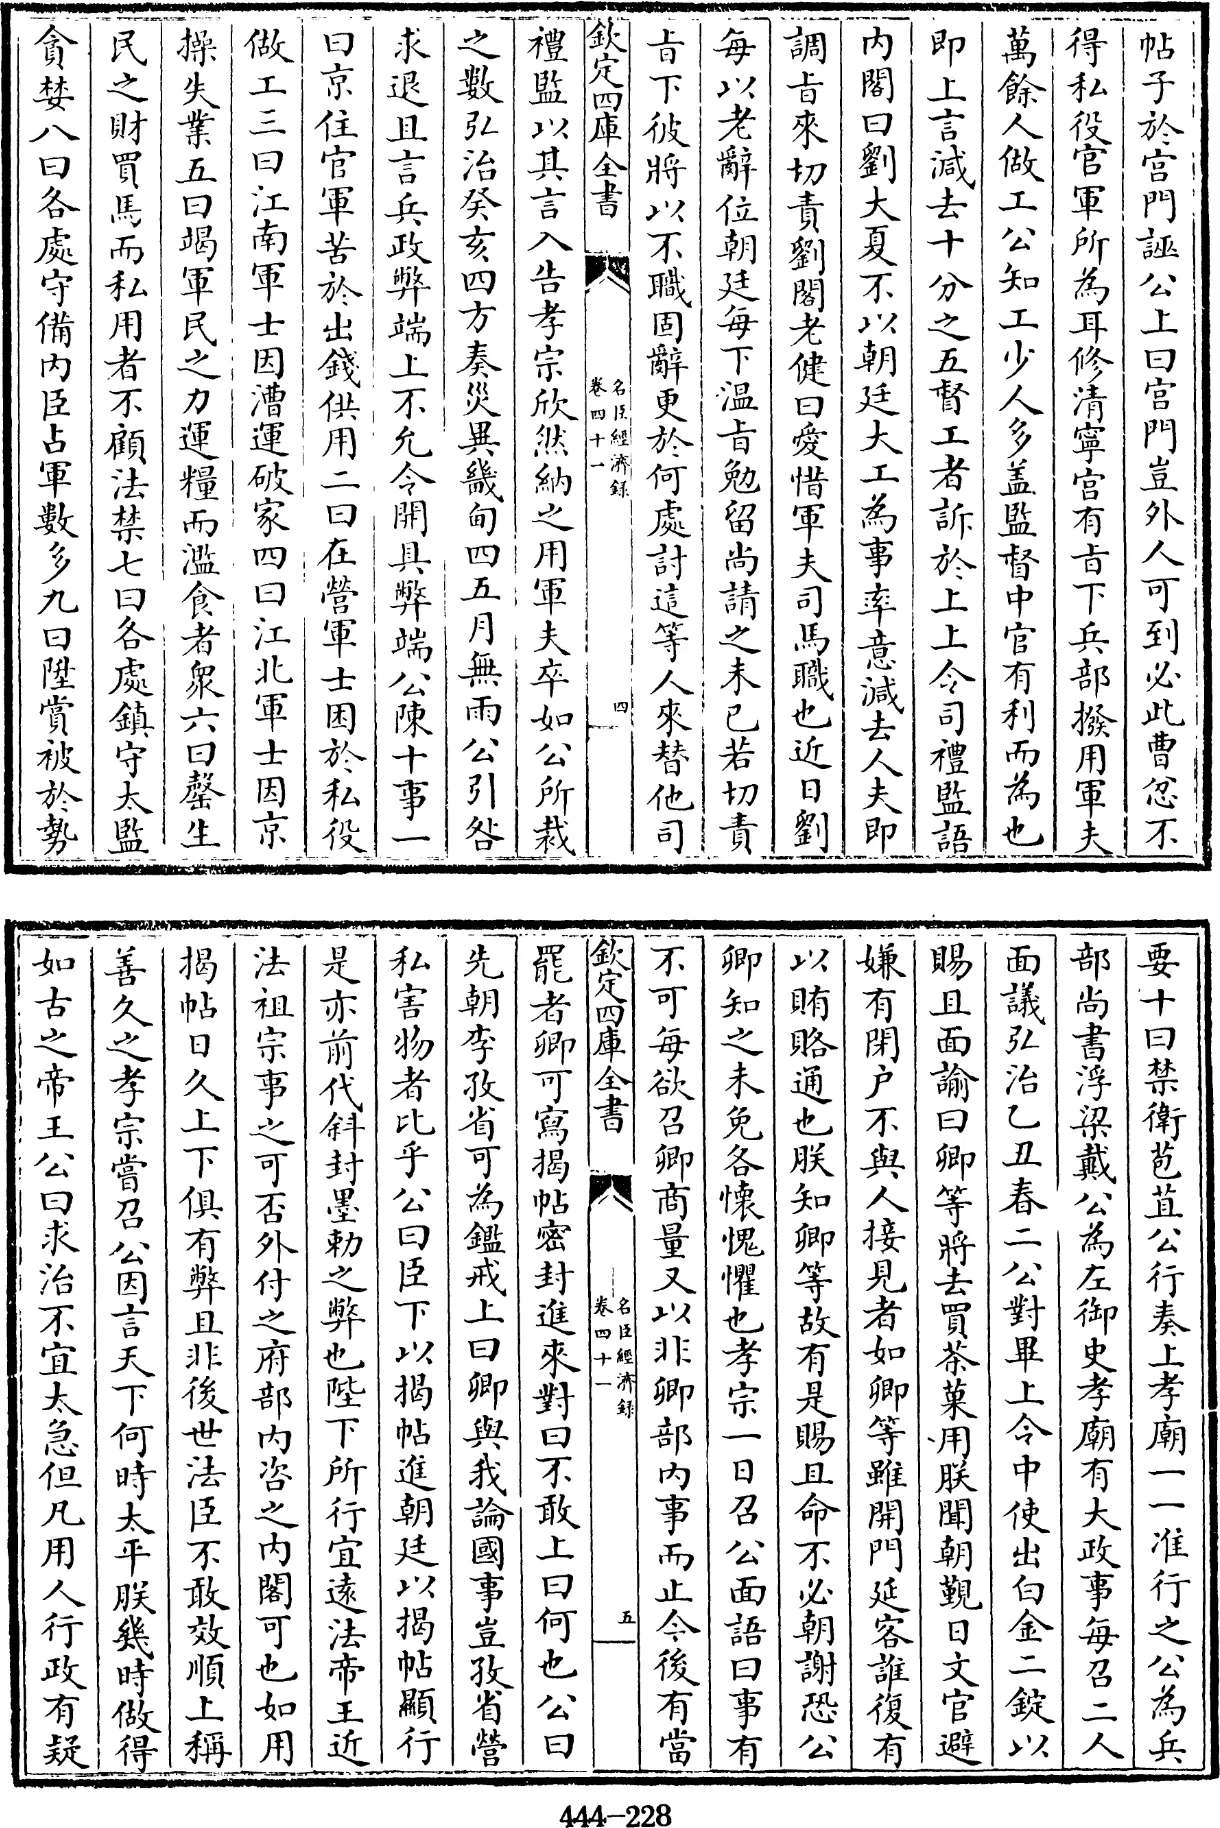 帖子於宫門誣公上曰宫門豈外人可到必此曹忿不
得私役官軍所為耳修清寧宫有旨下兵部撥用軍夫
萬餘人做工公知工少人多盖監督中官有利而為也
即上言減去十分之五督工者訴於上上令司禮監語
内閣曰劉大夏不以朝廷大工為事率意減去人夫即
調旨來切責劉閣老健曰愛惜軍夫司馬職也近日劉
每以老辭位朝廷每下溫旨勉留尚請之未已若切責
旨下彼將以不職固辭更於何處討這等人來替他司
欽定四庫全書
名臣經濟録
卷四十一
四
禮監以其言入告孝宗欣然納之用軍夫卒如公所裁
之數弘治癸亥四方奏災異畿甸四五月無雨公引咎
求退且言兵政弊端上不允令開具弊端公陳十事一
曰京住官軍苦於出錢供用二曰在營軍士困於私役
做工三曰江南軍士因漕運破家四曰江北軍士因京
操失業五曰竭軍民之力運糧而濫食者衆六曰罄生
民之財買馬而私用者不顧法禁七曰各處鎮守太監
貪婪八曰各處守備内臣占軍數多九曰陞賞被於勢
要十曰禁衛苞苴公行奏上孝廟一一准行之公為兵
部尚書浮梁戴公為左御史孝廟有大政事每召二人
面議弘治乙丑春二公對畢上令中使出白金二錠以
賜且面諭曰卿等將去買茶菓用朕聞朝覲日文官避
嫌有閉户不與人接見者如卿等雖開門延客誰復有
以賄賂通也朕知卿等故有是賜且命不必朝謝恐公
卿知之未免各懐愧懼也孝宗一日召公面語曰事有
不可每欲召卿商量又以非卿部内事而止今後有當
欽定四庫全書
名臣經濟録
卷四十一
五
罷者卿可寫揭帖密封進來對曰不敢上曰何也公曰
先朝李孜省可為鑑戒上曰卿與我論國事豈孜省營
私害物者比乎公曰臣下以揭帖進朝廷以揭帖顯行
是亦前代斜封墨勅之弊也陛下所行宜遠法帝王近
法祖宗事之可否外付之府部内咨之内閣可也如用
揭帖日久上下俱有弊且非後世法臣不敢效順上稱
善久之孝宗嘗召公因言天下何時太平朕幾時做得
如古之帝王公曰求治不宜太急但凡用人行政有疑
444-228